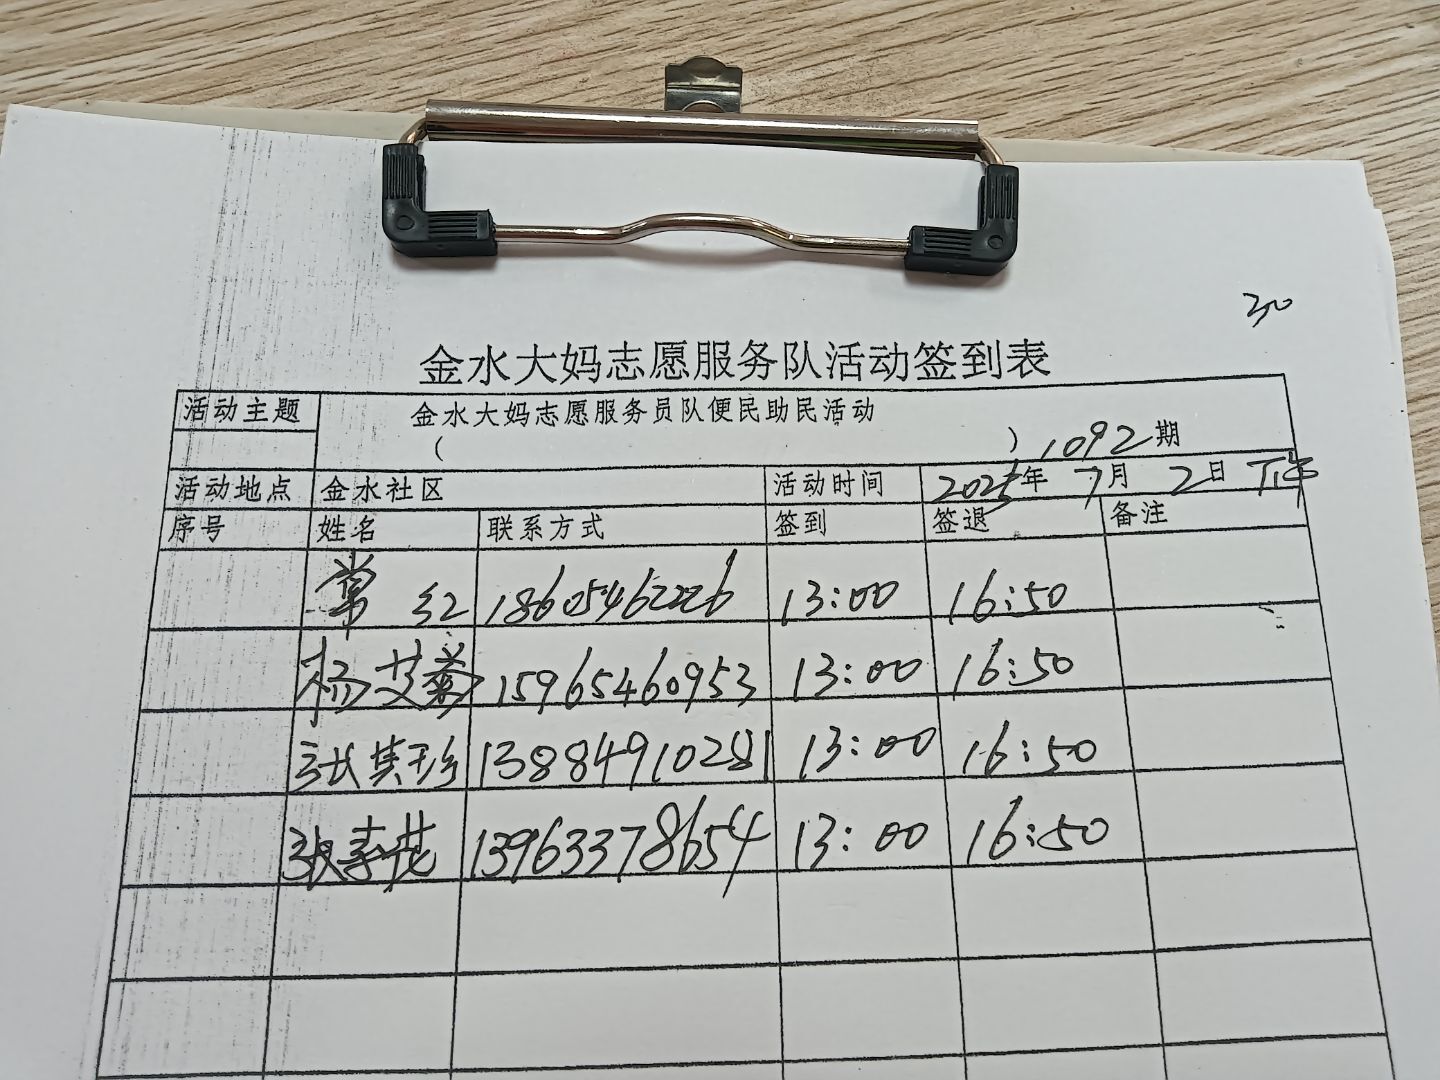 30
金水大妈志愿服务队活动签到表
活动主题 金水大妈志愿服务员队便民助民活动
( ) 1092期
活动地点 金水社区 活动时间 2025年 7月 2日 下午
序号 姓名 联系方式 签到 签退 备注
常红 18605462226 13:00 16:50
杨艾菊 15965460953 13:00 16:50
张其珍 13884910281 13:00 16:50
张素花 13963378654 13:00 16:50